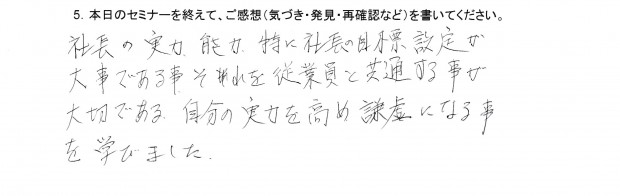 5. 本日のセミナーを終えて、ご感想（気づき・発見・再確認など）を書いてください。
社長の実力、能力、特に社長の目標設定が
大事である事それを従業員と共通する事が
大切である、自分の実力を高め謙虚になる事
を学びました。